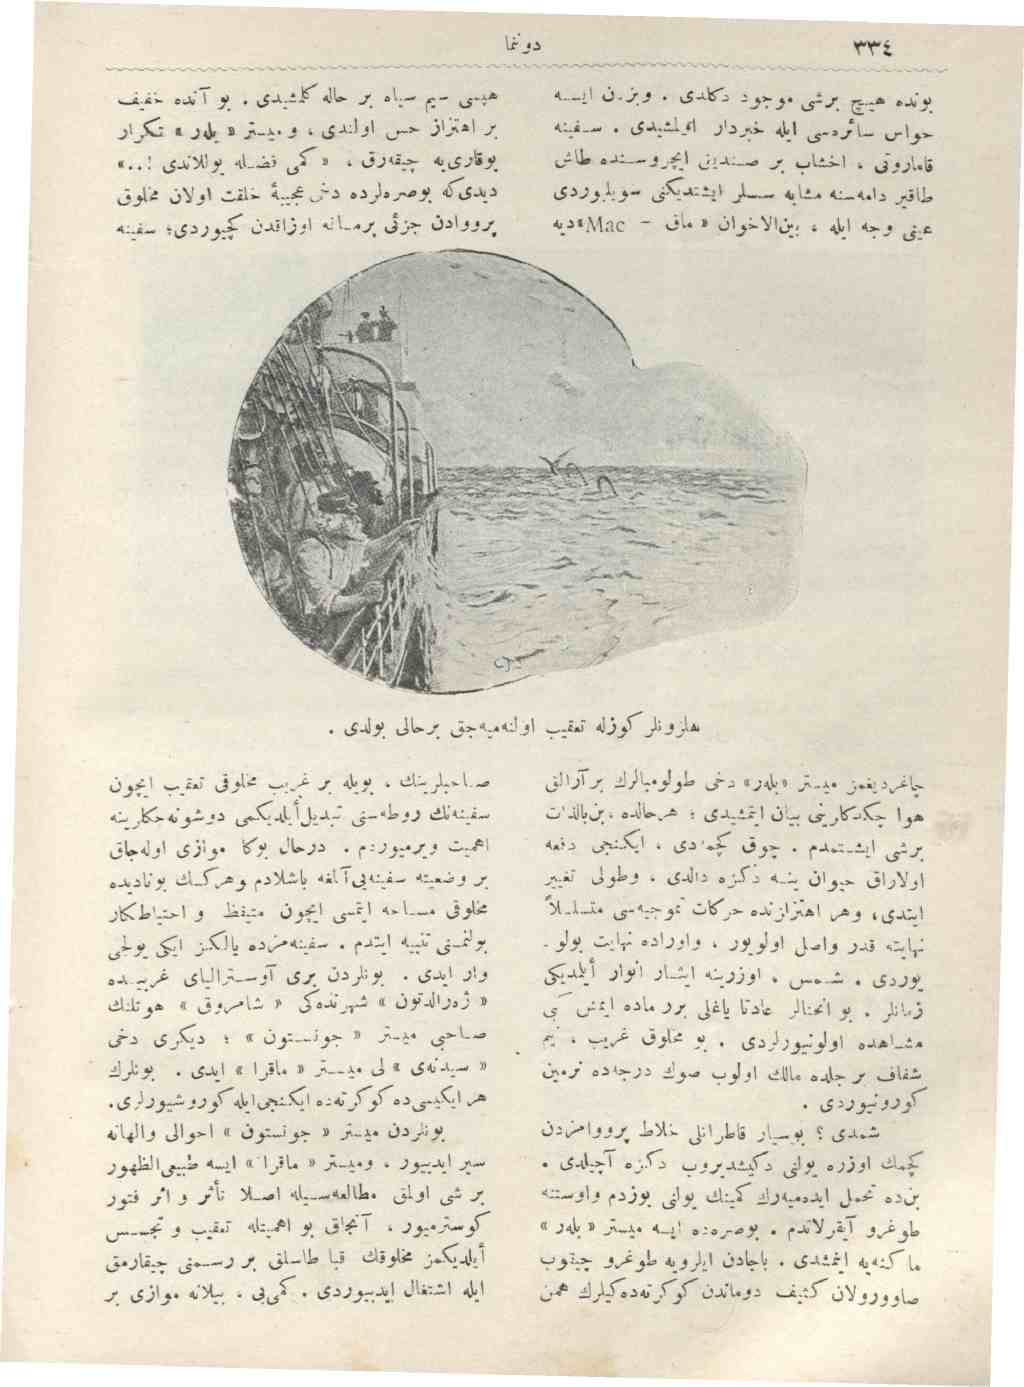 ٣٣٤
دونما
بونده هیچ برشی موجود دکلدی . وبزن ایسه
حواس سائره‌سی ایله خبردار اولمشیدی . سفینه
قاماروتی ، اخشاب بر صندیق ایچروسنده طاش
طاقیر دامه‌سنه مشابه سسلر ایشتدیکنی سویلیوردی
عینی وجه ایله ، بین‌الاخوان « ماق - Mac » دیه
هپسی سیم سیاه بر حاله کلمشیدی . بو آنده خفیف
بر اهتزاز حس اولندی ، و میستر « یلەر » تکرار
یوقاری‌یه چیقه‌رق ، « کمی فضله یوللاندی !..»
دیدی‌که بوصره‌لرده دخی عجیبهٔ خلقت اولان مخلوق
پرووادن جزئی برمسافه اوزاقدن کچیوردی؛ سفینه
هلزونلر کوزله تعقیب اولنه‌میه‌جق برحالی بولدی .
چاغردیغمز میستر «یلەر» دخی طولومبالرك بر آرالق
هوا چکدکلرینی بیان ایتمشیدی ؛ هرحالده ، بن‌بالذات
برشی ایشتمدم . چوق کچمدی ، ایکنجی دفعه
اولاراق حیوان ینه دکزه دالدی ، وطولی تغییر
ایتدی، وهر اهتزازنده حرکات تموجیه‌سی متسلسلاً
نهایته قدر واصل اولویور ، واوراده نهایت بولو-
یوردی . شمس ، اوزرینه ایثار انوار أیلمدیکی
زمانلر . بو انحنالر عادتا یاغلی برر ماده ایمش کبی
مشاهده اولونیورلردی . بو مخلوق غریب ، نیم
شفاف بر جلده مالك اولوب صوك درجه‌ده نرمین
کورونیوردی .
شمدی ؟ بوسیار قاطرانلی خلاط پرووامزدن
کچمك اوزره یولنی دکیشدیروب دکزه آچیلدی .
بن‌ده تحمل ایده‌میه‌رك کمینك یولنی بوزدم واوستنه
طوغرو آیقیرلاندم . بوصره‌ده ایسه میستر « یلەر »
ماکنه‌یه اینمشدی . باجادن ایلرویه طوغرو چیقوب
صاوورولان کثیف دوماندن کوکرته‌ده‌کیلرك همن
صاحبلرینك ، بویله بر غریب مخلوقی تعقیب ایچون
سفینه‌نك روطه‌سنی تبدیل أیلدیکمی دوشونه‌جکلرینه
اهمیت ویرمیوردم . درحال بوکا موازی اوله‌جاق
بر وضعیته سفینه‌یی آلمغه باشلادم وهرکسك بونادیده
مخلوقی مساحه ایتمسی ایچون متیقظ و احتیاطکار
بولنمسنی تنبیه ایتدم . سفینه‌مزده یالکز ایکی یولجی
وار ایدی . بونلردن بری آوسترالیای غربیده
« ژه‌رالدتون » شهرنده‌کی « شامروق » هوتلنك
صاحبی میستر « جونستون » ؛ دیکری دخی
« سیدنه‌ی » لی میستر « ماقرا » ایدی . بونلرك
هر ایکیسی‌ده کوکرته‌ده ایکنجی‌ایله کوروشیورلردی.
بونلردن میستر « جونستون » احوالی والهانه
سیر ایدییور ، ومیستر « ماقرا » ایسه طبیعی‌الظهور
بر شی اولمق مطالعه‌سیله اصلا تأثر و اثر فتور
کوسترمیور ، آنجاق بو اهمیتله تعقیب و تجسس
أیلدیکمز مخلوقك قبا طاسلق بر رسمنی چیقارمق
ایله اشتغال ایدییوردی . کمی‌یی ، ییلانه موازی بر